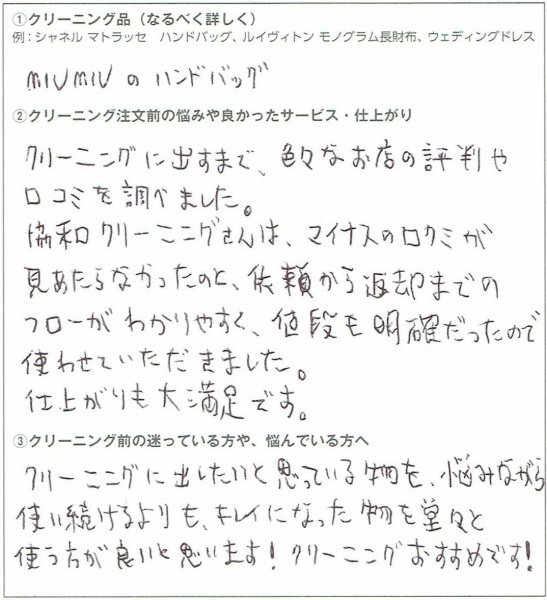 ①クリーニング品（なるべく詳しく）
例：シャネル マトラッセ　ハンドバッグ、ルイヴィトン モノグラム長財布、ウェディングドレス
MIUMIUのハンドバッグ
②クリーニング注文前の悩みや良かったサービス・仕上がり
クリーニングに出すまで、色々なお店の評判や
口コミを調べました。
協和クリーニングさんは、マイナスの口クミが
見あたらなかったのと、依頼から返却までの
フローがわかりやすく、値段も明確だったので
使わせていただきました。
仕上がりも大満足です。
③クリーニング前の迷っている方や、悩んでいる方へ
クリーニングに出したいと思っている物を、悩みながら
使い続けるよりも、キレイになった物を堂々と
使う方が良いと思います！クリーニングおすすめです！